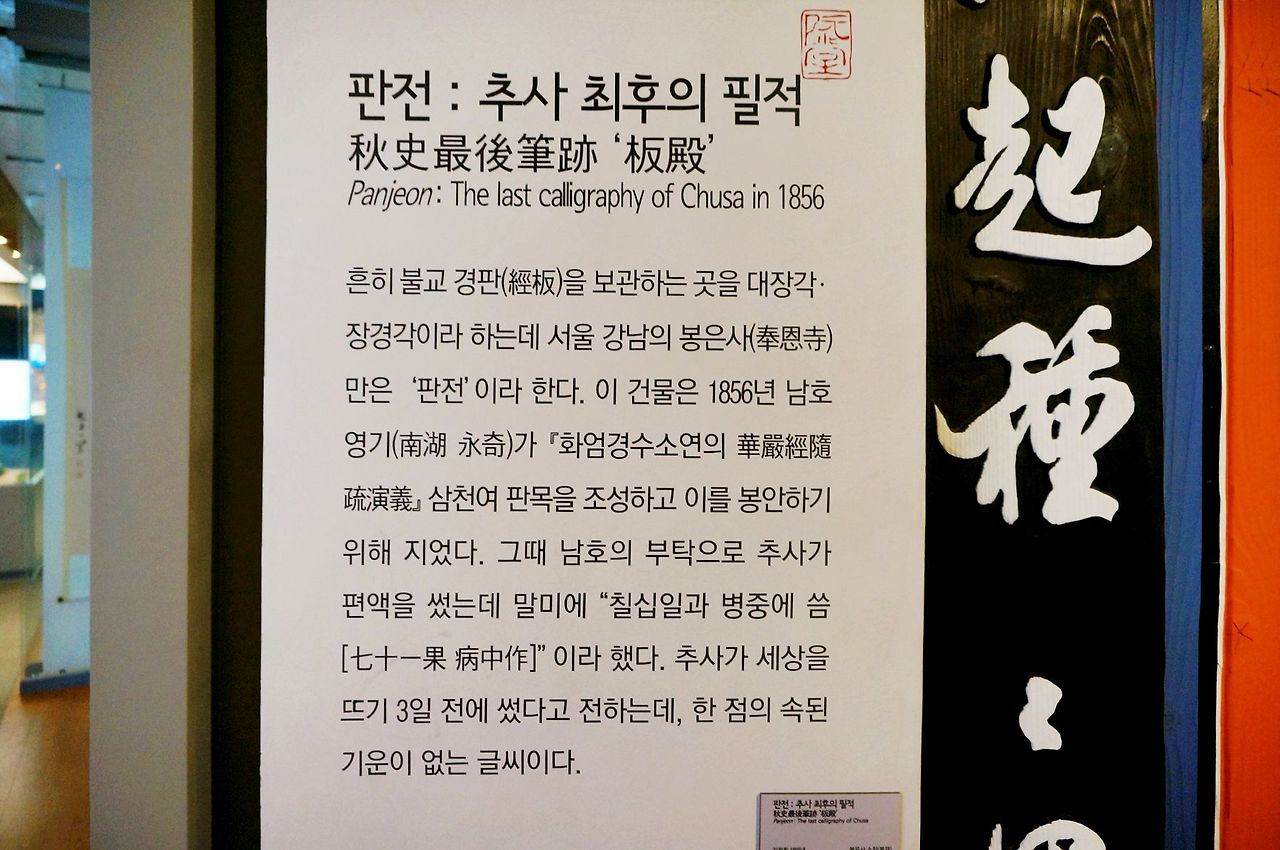 阮堂
판전 : 추사 최후의 필적
秋史最後筆跡 ‘板殿’
Panjeon : The last calligraphy of Chusa in 1856
흔히 불교 경판(經板)을 보관하는 곳을 대장각·
장경각이라 하는데 서울 강남의 봉은사(奉恩寺)
만은 ‘판전’이라 한다. 이 건물은 1856년 남호
영기(南湖 永奇)가 『화엄경수소연의 華嚴經隨
疏演義』 삼천여 판목을 조성하고 이를 봉안하기
위해 지었다. 그때 남호의 부탁으로 추사가
편액을 썼는데 말미에 “칠십일과 병중에 씀
[七十一果 病中作]” 이라 했다. 추사가 세상을
뜨기 3일 전에 썼다고 전하는데, 한 점의 속된
기운이 없는 글씨이다.
판전 : 추사 최후의 필적
秋史最後筆跡 ‘板殿’
Panjeon : The last calligraphy of Chusa
起
種
〻